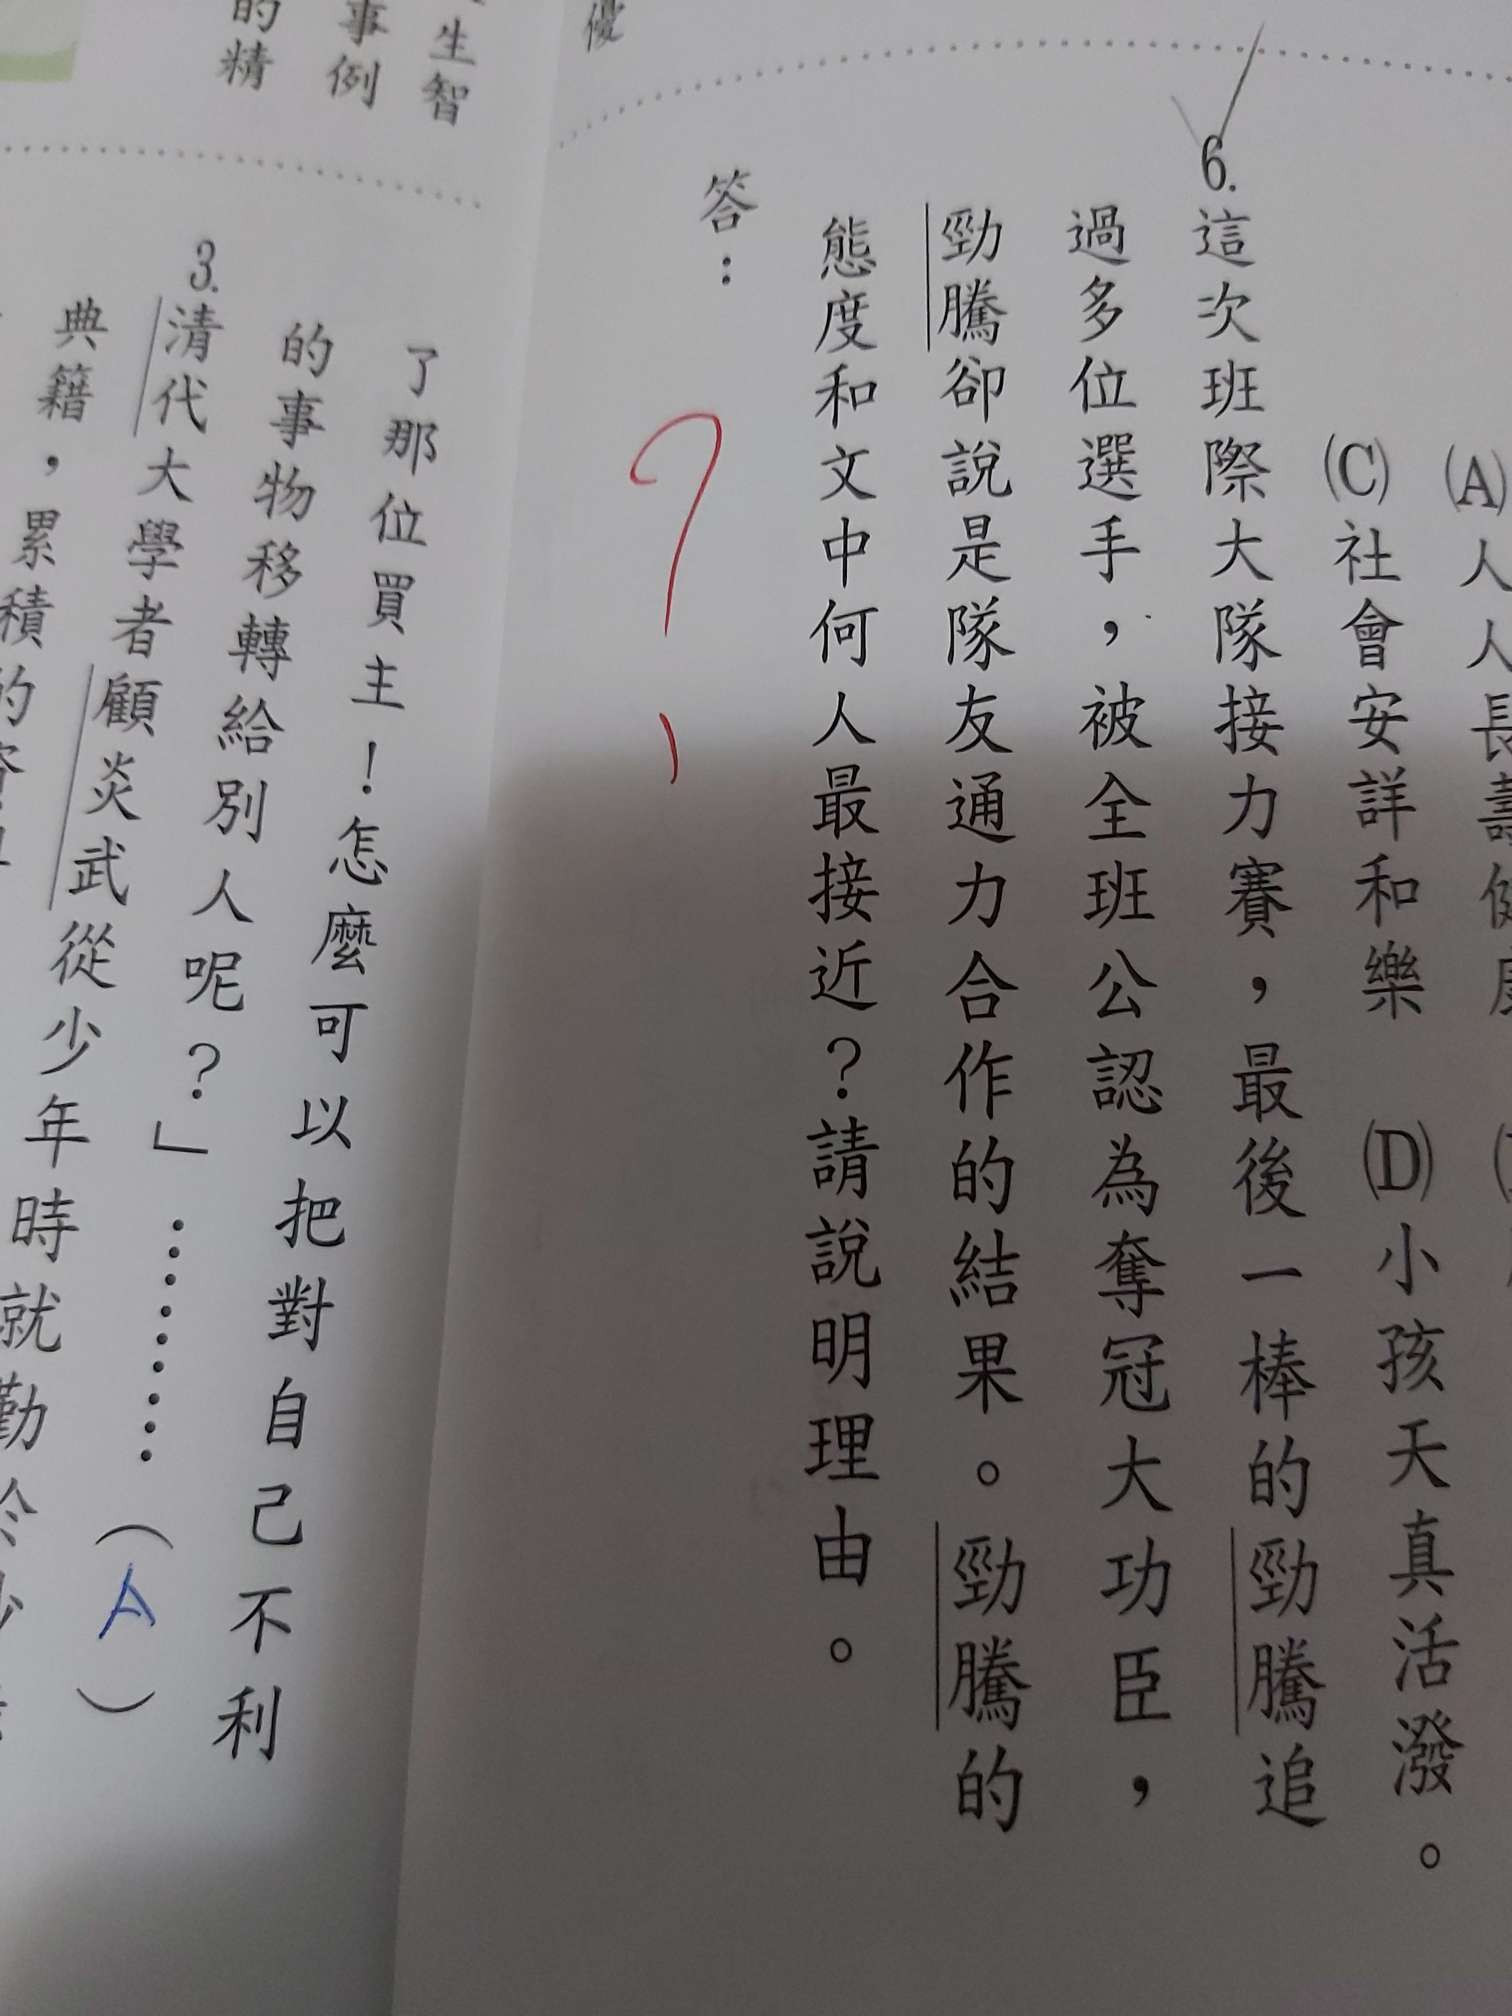 (A)人人長壽健
(C)社會安詳和樂 (D)小孩天真活潑。
6.這次班際大隊接力賽，最後一棒的勁騰追
過多位選手，被全班公認為奪冠大功臣，
勁騰卻說是隊友通力合作的結果。勁騰的
態度和文中何人最接近？請說明理由。
答：
?
優
生智
事例
的精
了那位買主！怎麼可以把對自己不利
的事物移轉給別人呢？」………（A）
3.清代大學者顧炎武從少年時就勤於
典籍，累積的